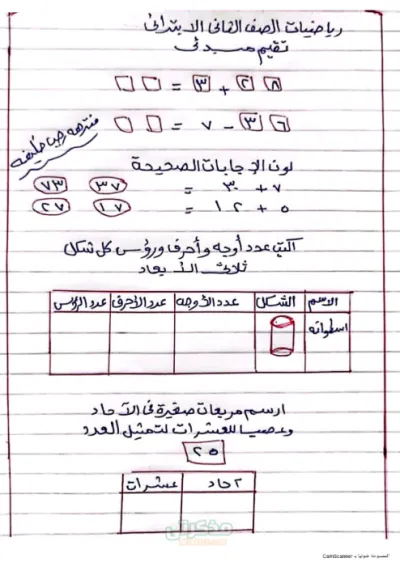 رياضيات الصف الثاني الابتدائي
تقيم مبدئي
٢ ٨ + ٣ = □ □
٣ ٦ - ٧ = □ □
منتهى رجب خليفه
لون الإجابات الصحيحة
٧ + ٣٠ = ٣٧ ٧٣
٥ + ١٢ = ١٧ ٢٧
اكتب عدد أوجه وأحرف ورؤس كل شكل
ثلاثى الأبعاد
الاسم الشكل عدد الأوجه عدد الأحرف عدد الرؤس
اسطوانه
ارسم مربعات صغيرة فى الآحاد
وعصيا للعشرات لتمثيل العدد
٢٥
آحاد عشرات
مذكرتي
الممسوحة ضوئيا بـ CamScanner